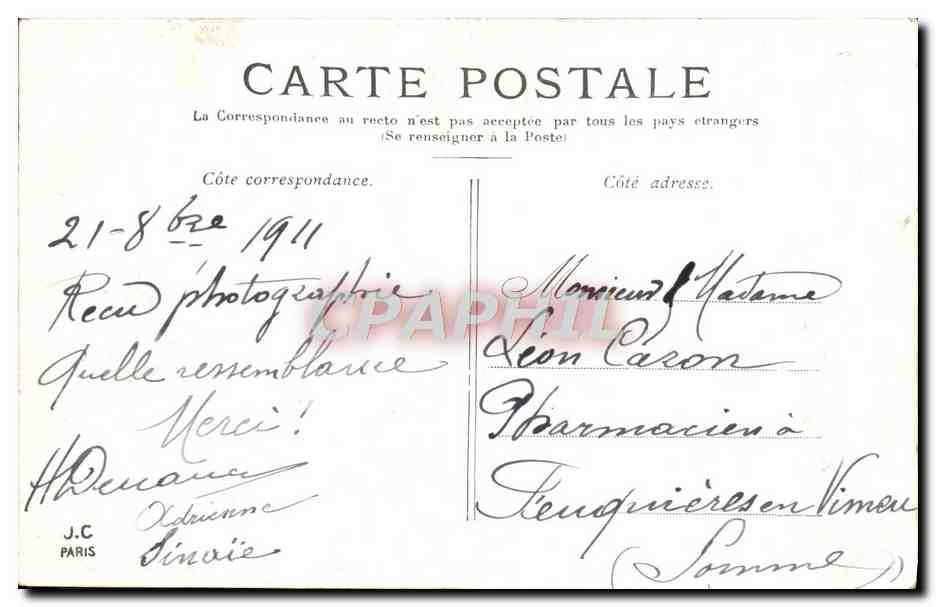 CARTE POSTALE
La Correspondance au recto n'est pas acceptée par tous les pays etrangers
(Se renseigner à la Poste)
Côte correspondance.
21-8bre 1911
Recu photographie
Quelle ressemblance
Merci!
Adrienne
Sinoïe
J.C
PARIS
Côté adresse.
Monsieur & Madame
Léon Cazon
Pharmacien à
Feuquières en Vimeu
(Somme)
CPAPHIL